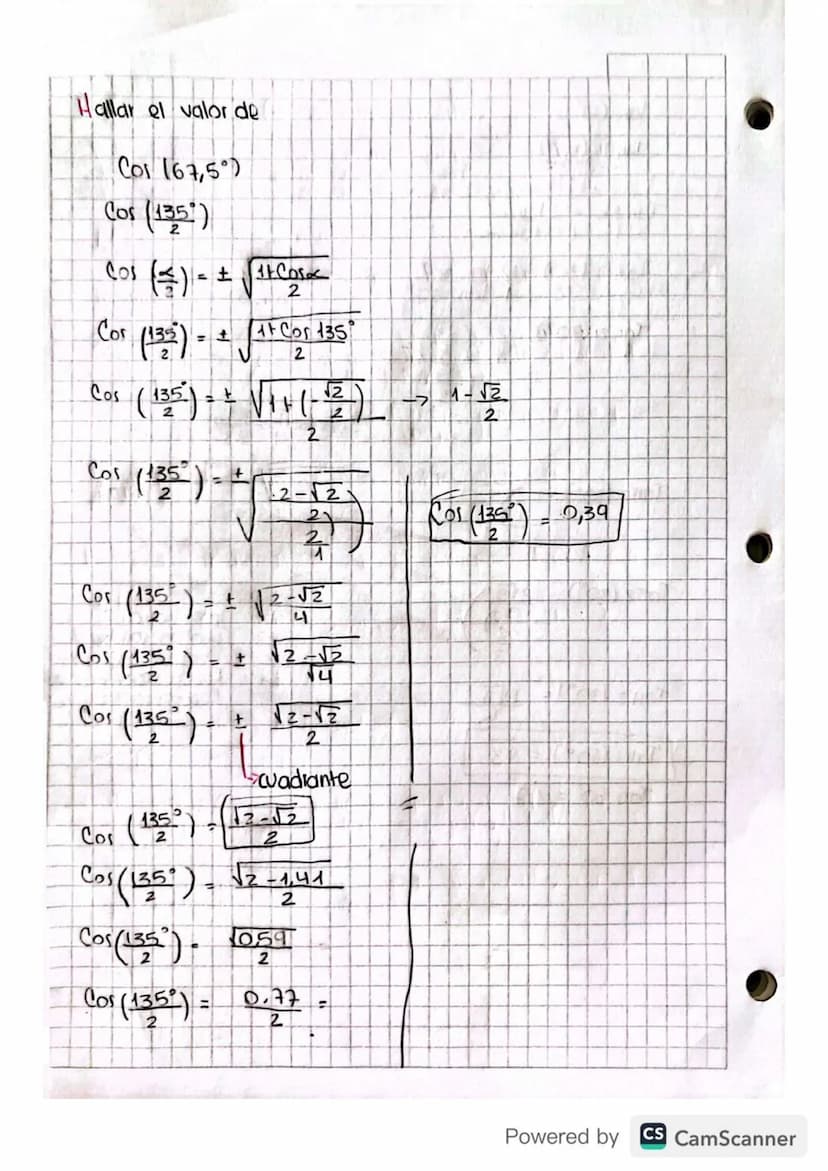 Hallar el valor de
Cos (67,5°)
Cos (135°/2)
Cos (α/2) = ± √(1+Cosα/2)
Cos (135°/2) = ± √(1+Cos 135°/2)
Cos (135°/2) = ± √(1+(-√2/2)/2) → 1-√2/2
Cos (135°/2) = ± √((2-√2/2)/(2/1))
Cos (135°/2) = ± √(2-√2/4)
Cos (135°/2) = ± √(2-√2)/√4
Cos (135°/2) = ± √(2-√2)/2
cuadrante
Cos (135°/2) = √(2-√2)/2
Cos (135°/2) = √(2-1,41)/2
Cos (135°/2) = √0,59/2
Cos (135°/2) = 0,77/2 =
Cos (135°/2) = 0,39
=
Powered by CS CamScanner